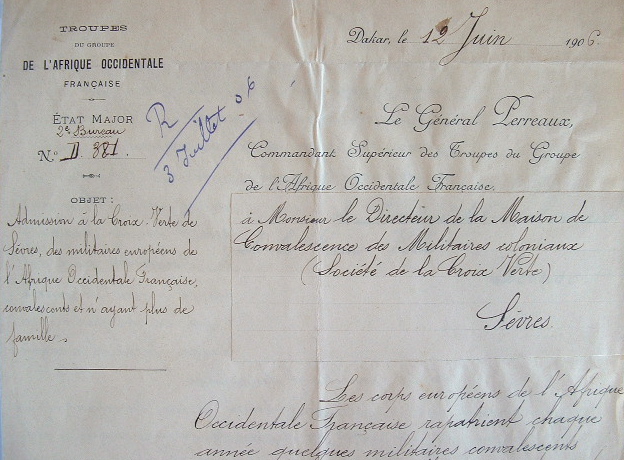 TROUPES
DU GROUPE
DE L'AFRIQUE OCCIDENTALE
FRANÇAISE
ÉTAT MAJOR
2e Bureau
N.º D. 881.
OBJET:
Admission à la Croix-Verte de
Sèvres, des militaires européens de
l'Afrique Occidentale Française,
convalescents et n'ayant plus de
famille.
R
3 Juillet 06
Dakar, le 12 Juin 1906.
Le Général Perreaux,
Commandant Supérieur des Troupes du Groupe
de l'Afrique Occidentale Française.
à Monsieur le Directeur de la Maison de
Convalescence des Militaires coloniaux
(Société de la Croix Verte)
Sèvres.
Les corps européens de l'Afrique
Occidentale Française rapatrient chaque
année quelques militaires convalescents